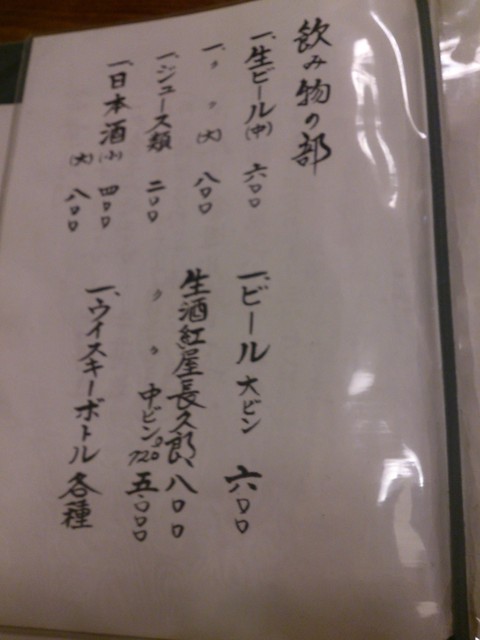 飲み物の部
一、生ビール(中) 六〇〇
一、〃 〃 (大) 八〇〇
一、ジュース類 二〇〇
一、日本酒(小) 四〇〇
(大) 八〇〇
一、ビール 大ビン 六〇〇
生酒紅屋長久郎、八〇〇
〃 〃 中ビン 720 五、〇〇〇
一、ウイスキーボトル 各種